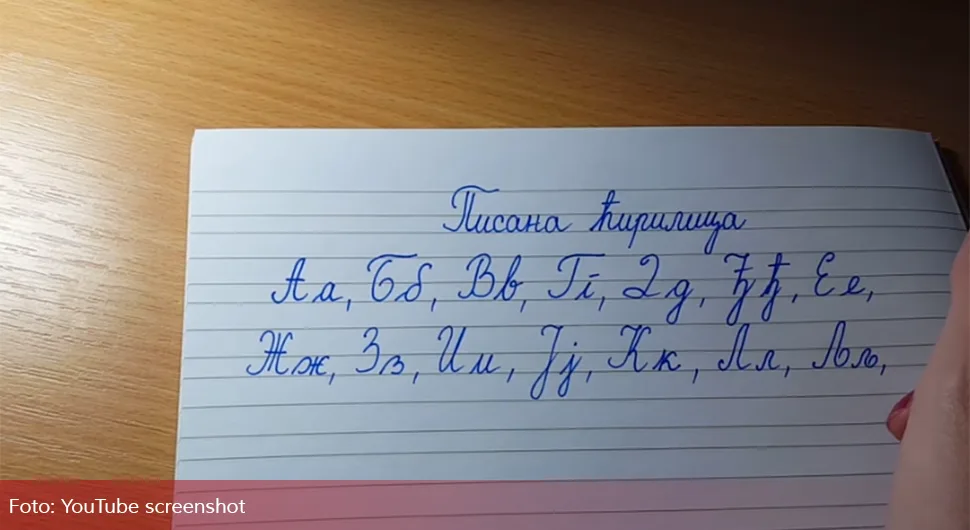 Писана ћирилица
Аа, Бб, Вв, Гг, Дд, Ђђ, Ее,
Жж, Зз, Ии, Јј, Кк, Лл, Љљ,
Foto: YouTube screenshot